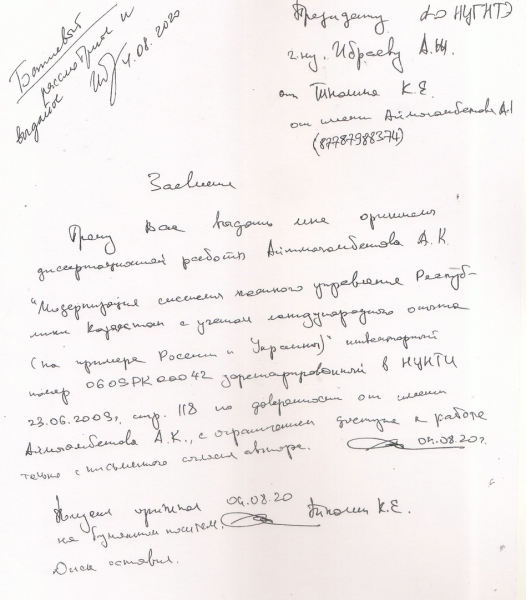 рассмотрите и
выдайте
4.08.2020
Президенту АО НЦГНТЭ
г-ну. Ибраеву А.Ж.
от Типолина К.Е.
от имени Айтмагамбетова Д.
(87787988374)
Заявление
Прошу Вас выдать мне оригинал
диссертационной работы Айтмагамбетова Д.К.
"Модернизация системы налогового управления Респуб-
лики Казахстан с учетом международного опыта
(на примере России и Украины)" инвентарный
номер 0609РК00042 зарегистрированной в НЦНТИ
23.06.2009, стр. 118 по доверенности от имени
Айтмагамбетова А.К., с ограничением доступа к работе
только с письменного согласия автора. 04.08.20г.
Получил оригинал 04.08.20
на бумажном носителе. К.Е.
Диск оставил.